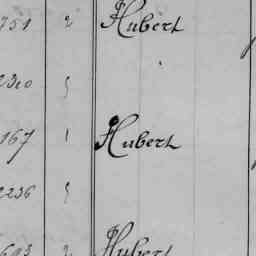 751 2 Hubert
2310 5
167 1 Hubert
2236 5
693 2 Hubert